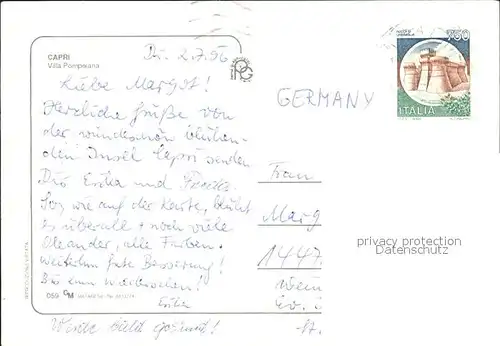 CAPRI
Villa Pompeiana
Di. 2.7.96
Liebe Margot!
Herzliche Grüße von
der wunderschön blühen-
den Insel Capri senden
Dir Erika und
So, wie auf der Karte, blüht
es überall + noch viele
Oleander, alle Farben.
Weiterhin gute Besserung!
Bis zum Wiedersehen!
Erika
Werde bald gesund!
GERMANY
750
ITALIA
Frau
Marg
1447
privacy protection
Datenschutz
059